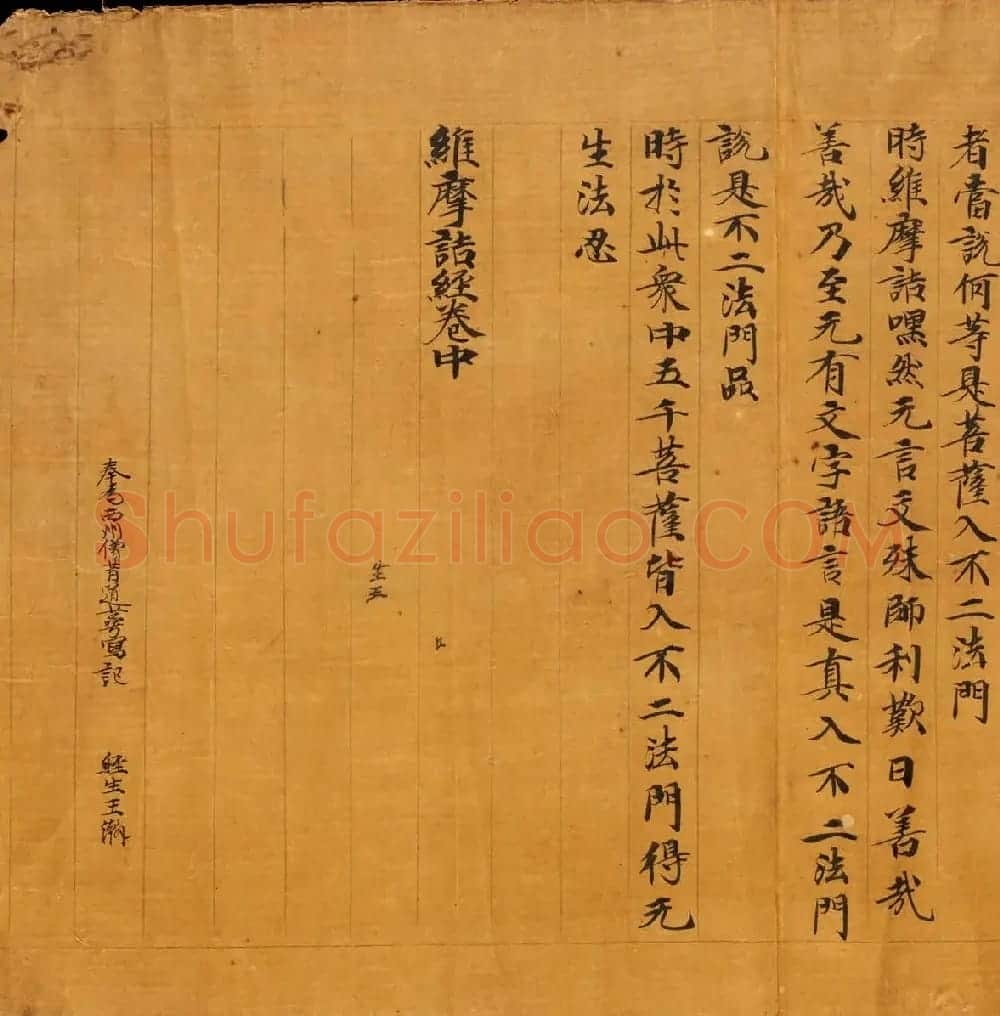 者當說何等是菩薩入不二法門
時維摩詰嘿然无言文殊師利歎曰善哉
善哉乃至无有文字語言是真入不二法門
說是不二法門品
時於此衆中五千菩薩皆入不二法門得无
生法忍
維摩詰經卷中
生五
奉為西州僧昔道萼寫記
經生王瀚
Shufaziliao.COM